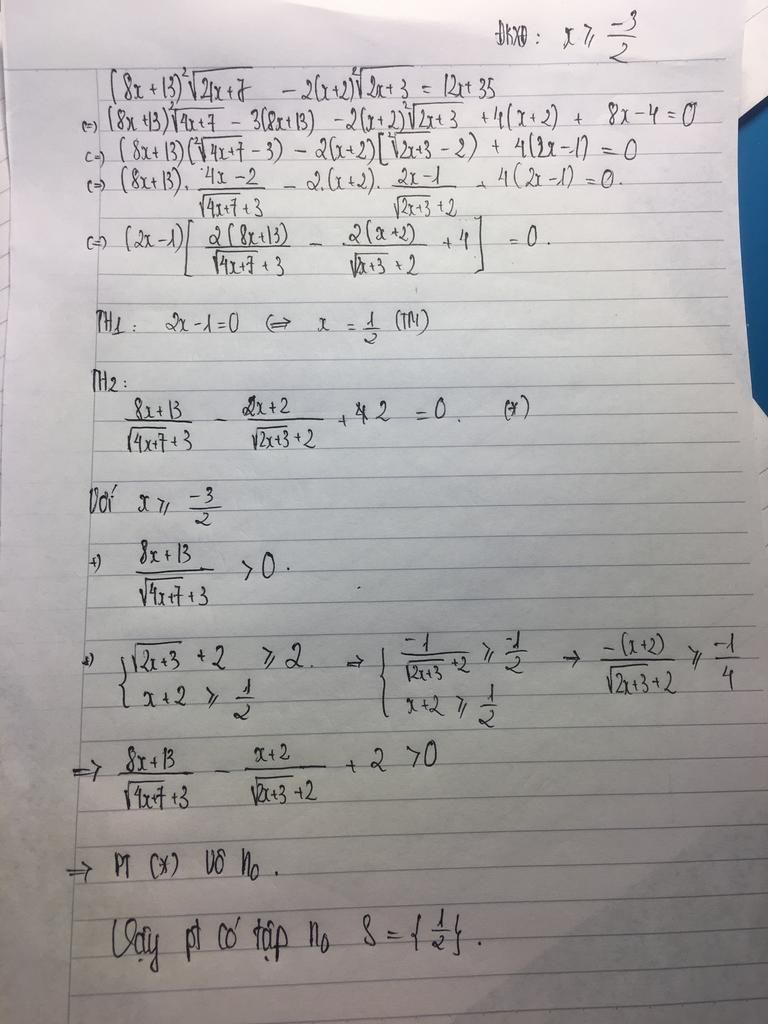 ĐKXĐ: x ≥ -3/2
(8x+13)²√4x+7 - 2(x+2)²√2x+3 = 12x+35
(=) (8x+13)²√4x+7 - 3(8x+13) - 2(x+2)²√2x+3 + 4(x+2) + 8x-4=0
(=) (8x+13)(²√4x+7 - 3) - 2(x+2)[²√2x+3 - 2) + 4(2x-1) = 0
(=) (8x+13). (4x-2)/(√4x+7 + 3) - 2.(x+2). (2x-1)/(√2x+3 + 2) + 4(2x-1) = 0.
(=) (2x-1)[2(8x+13)/(√4x+7 + 3) - 2(x+2)/(√2x+3 + 2) + 4] = 0.
TH1: 2x-1=0 ⇔ x = 1/2 (TM)
TH2:
(8x+13)/(√4x+7 + 3) - (2x+2)/(√2x+3 + 2) + 2 = 0. (*)
Với x ≥ -3/2
+) (8x+13)/(√4x+7 + 3) > 0.
+) {√2x+3 + 2 ≥ 2. x+2 ≥ 1/2 ⇒ {-1/(√2x+3 + 2) ≥ -1/2 x+2 ≥ 1/2 → -(x+2)/(√2x+3 + 2) ≥ -1/4
⇒ (8x+13)/(√4x+7 + 3) - (x+2)/(√2x+3 + 2) + 2 > 0
⇒ PT (*) Vô n₀.
Vậy pt có tập n₀ S = {1/2}.